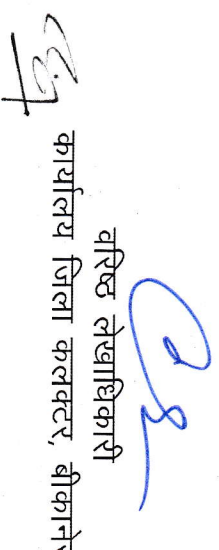 वरिष्ठ लेखाधिकारी
कार्यालय जिला कलक्टर, बीकानेर